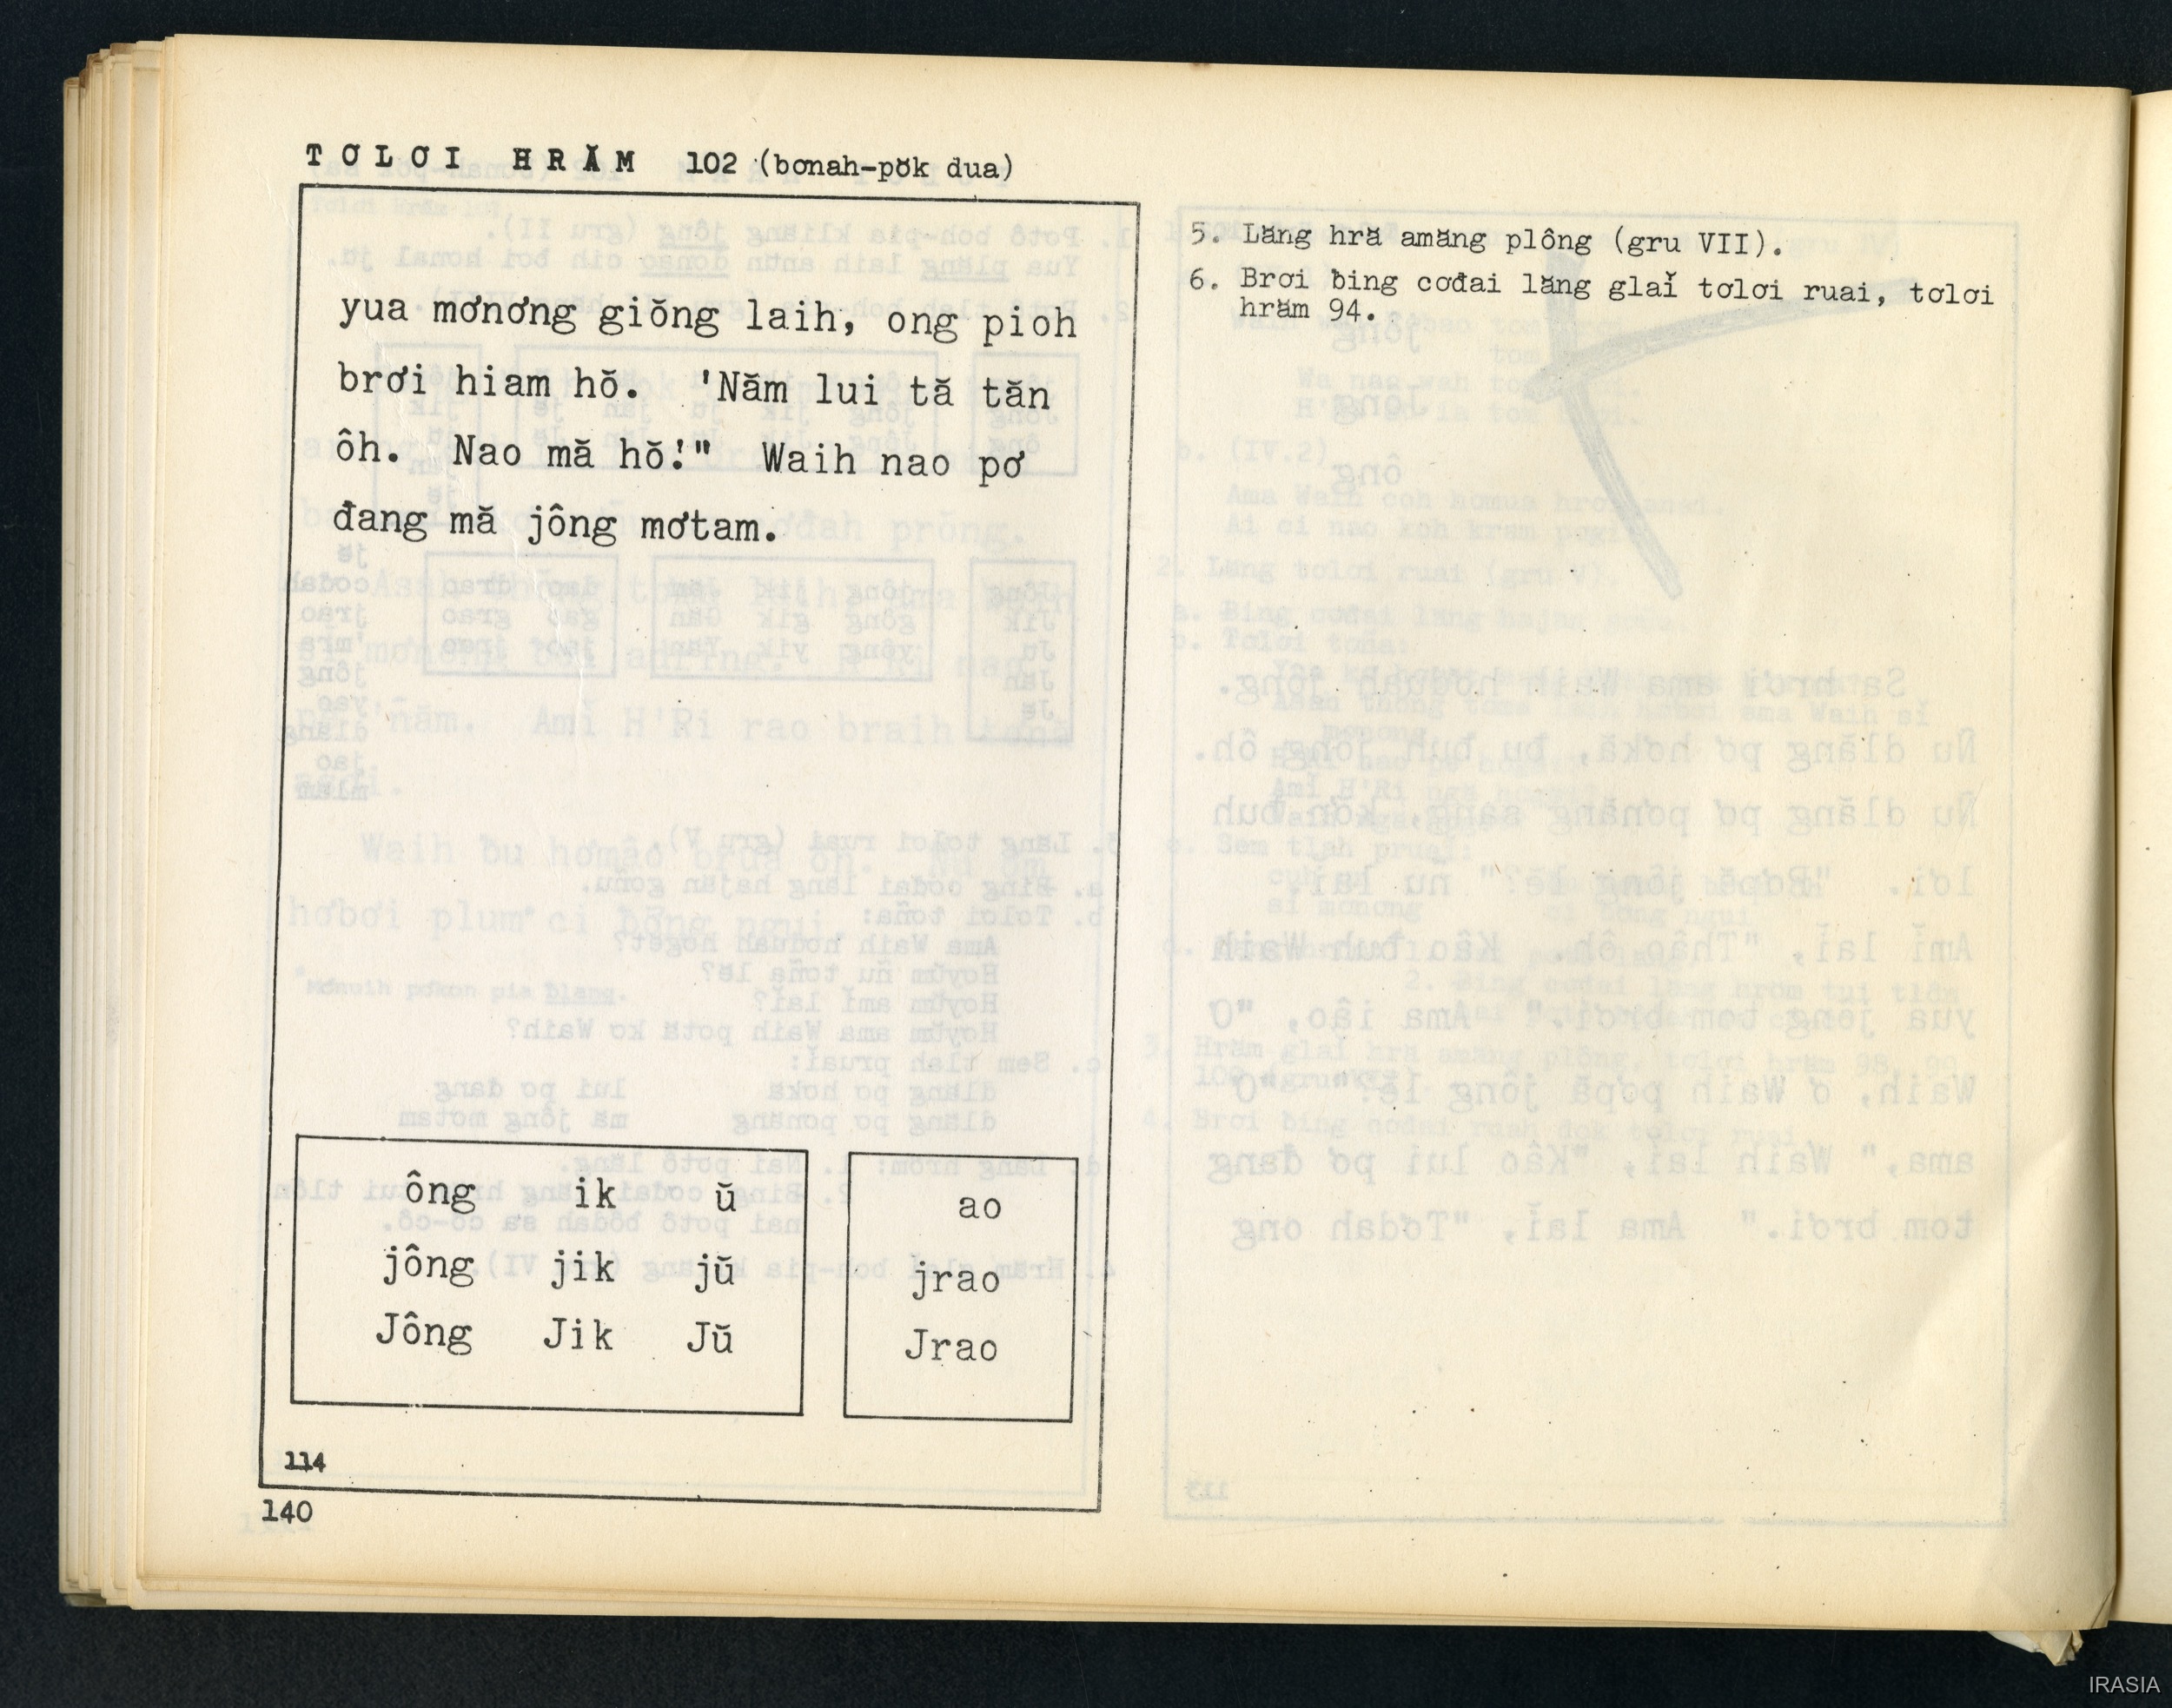 TƠLƠI HRĂM 102 (bơnah-pŏk dua)
yua mơnơng giŏng laih, ong pioh
brơi hiam hŏ. 'Năm lui tă tăn
ôh. Nao mă hŏ!" Waih nao pơ
đang mă jông mơtam.
ông ik ŭ
jông jik jŭ
Jông Jik Jŭ
ao
jrao
Jrao
114
140
5. Lăng hră amăng plông (gru VII).
6. Brơi ƀing cơđai lăng glaĭ tơlơi ruai, tơlơi
hrăm 94.
IRASIA